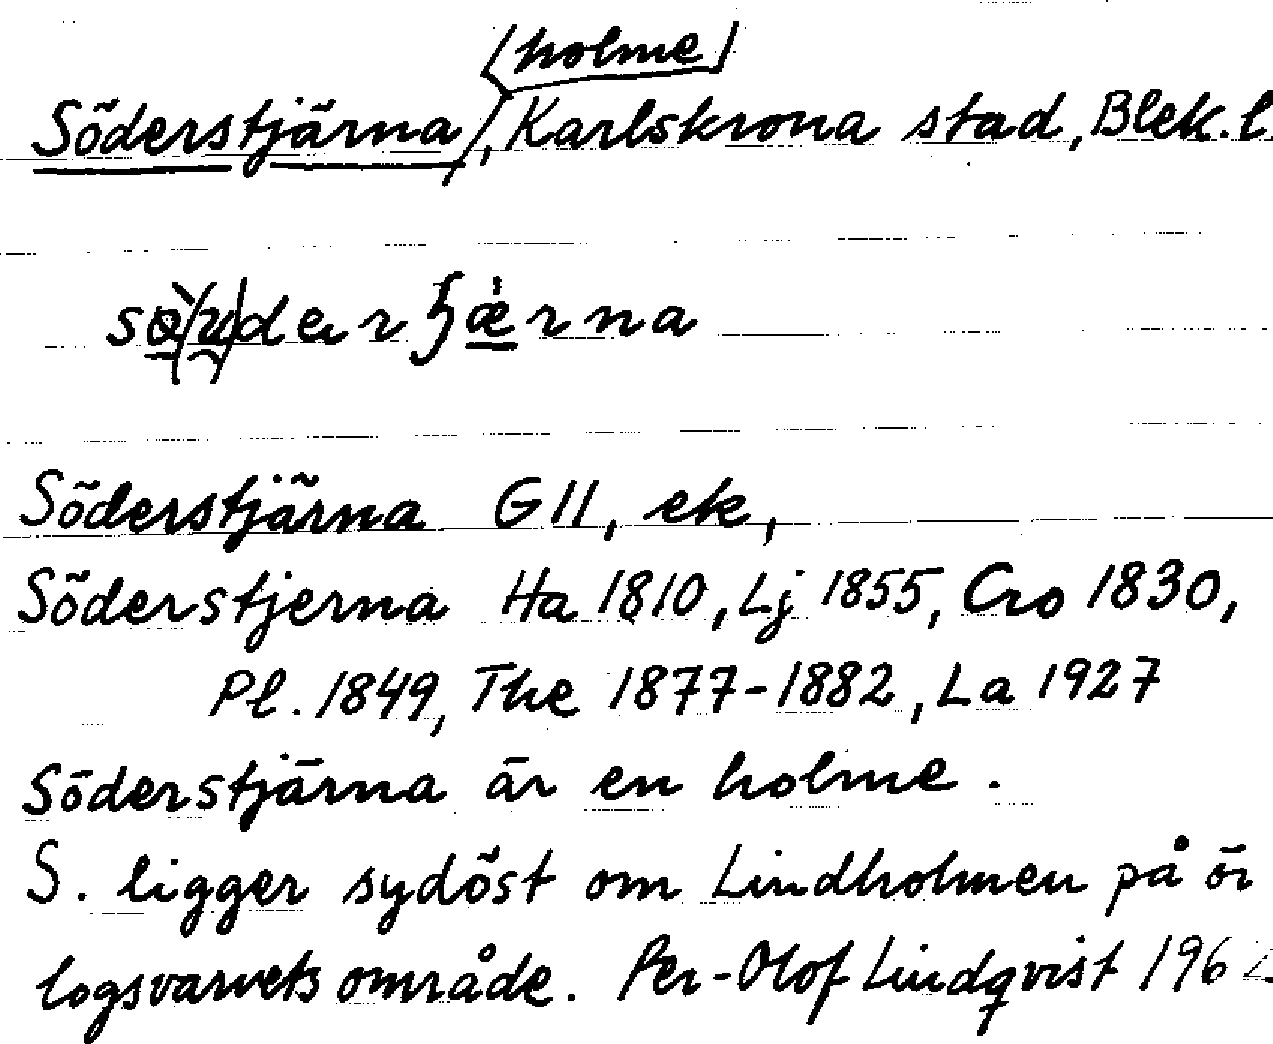 (holme)
Söderstjärna, Karlskrona stad, Blek. l

Söderstjärna GII, ek,
Söderstjerna Ha 1810, Lj 1855, Cro 1830,
Pl. 1849, The 1877-1882, La 1927
Söderstjärna är en holme.
S. ligger sydöst om Lindholmen på ör
logsvarvets område. Per-Olof Lindqvist 1962